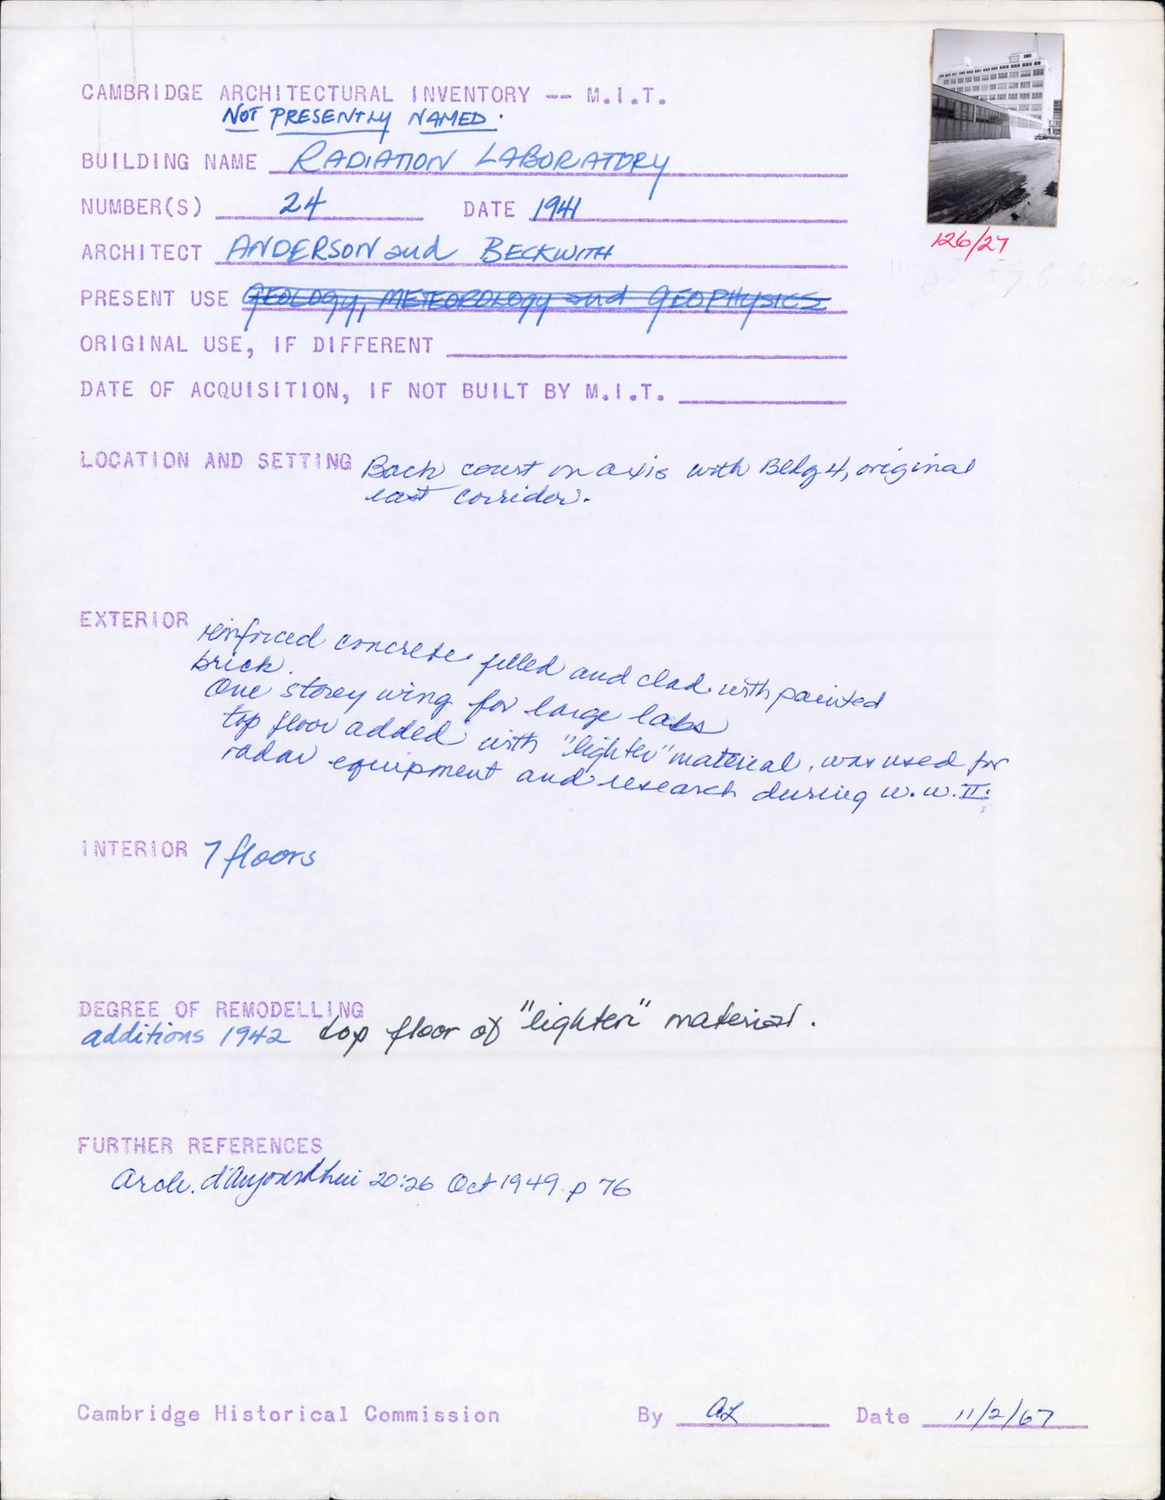 CAMBRIDGE ARCHITECTURAL INVENTORY -- M.I.T.
NOT PRESENTLY NAMED.
BUILDING NAME RADIATION LABORATORY
NUMBER(S) 24 DATE 1941
ARCHITECT ANDERSON and BECKWITH
PRESENT USE GEOLOGY, METEOROLOGY and GEOPHYSICS
ORIGINAL USE, IF DIFFERENT
DATE OF ACQUISITION, IF NOT BUILT BY M.I.T.
126/27
LOCATION AND SETTING Back court on axis with Bldg 4, original
east corridor.
EXTERIOR reinforced concrete filled and clad with painted
brick.
One storey wing for large labs
top floor added with "lighter" material, was used for
radar equipment and research during W.W.II.
INTERIOR 7 floors
DEGREE OF REMODELLING
additions 1942 top floor of "lighter" material.
FURTHER REFERENCES
Arch. d'Aujourdhui 20:26 Oct 1949 p 76
Cambridge Historical Commission By AL Date 11/2/67